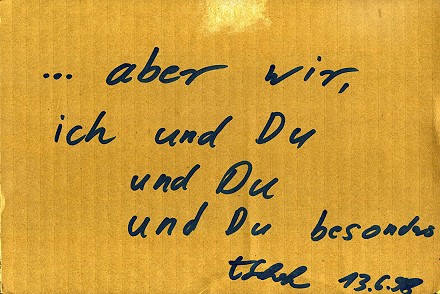 ... aber wir,
ich und Du
und Du
und Du besonders
13.6.98